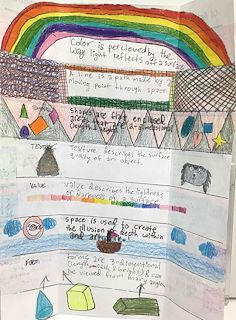 Color is percieved by the
way light reflects off a surface
A line is a path made by a
moving point through space.
shapes are flat, enclosed
length 2-dimensions
Texture
Texture describes the surface
quality of an object.
VALUE
value describes the lightness
or darkness of a surface
space is used to create
the illusion of depth within
Form
forms are 3-dimentional
length & height & can
be viewed from many
angles